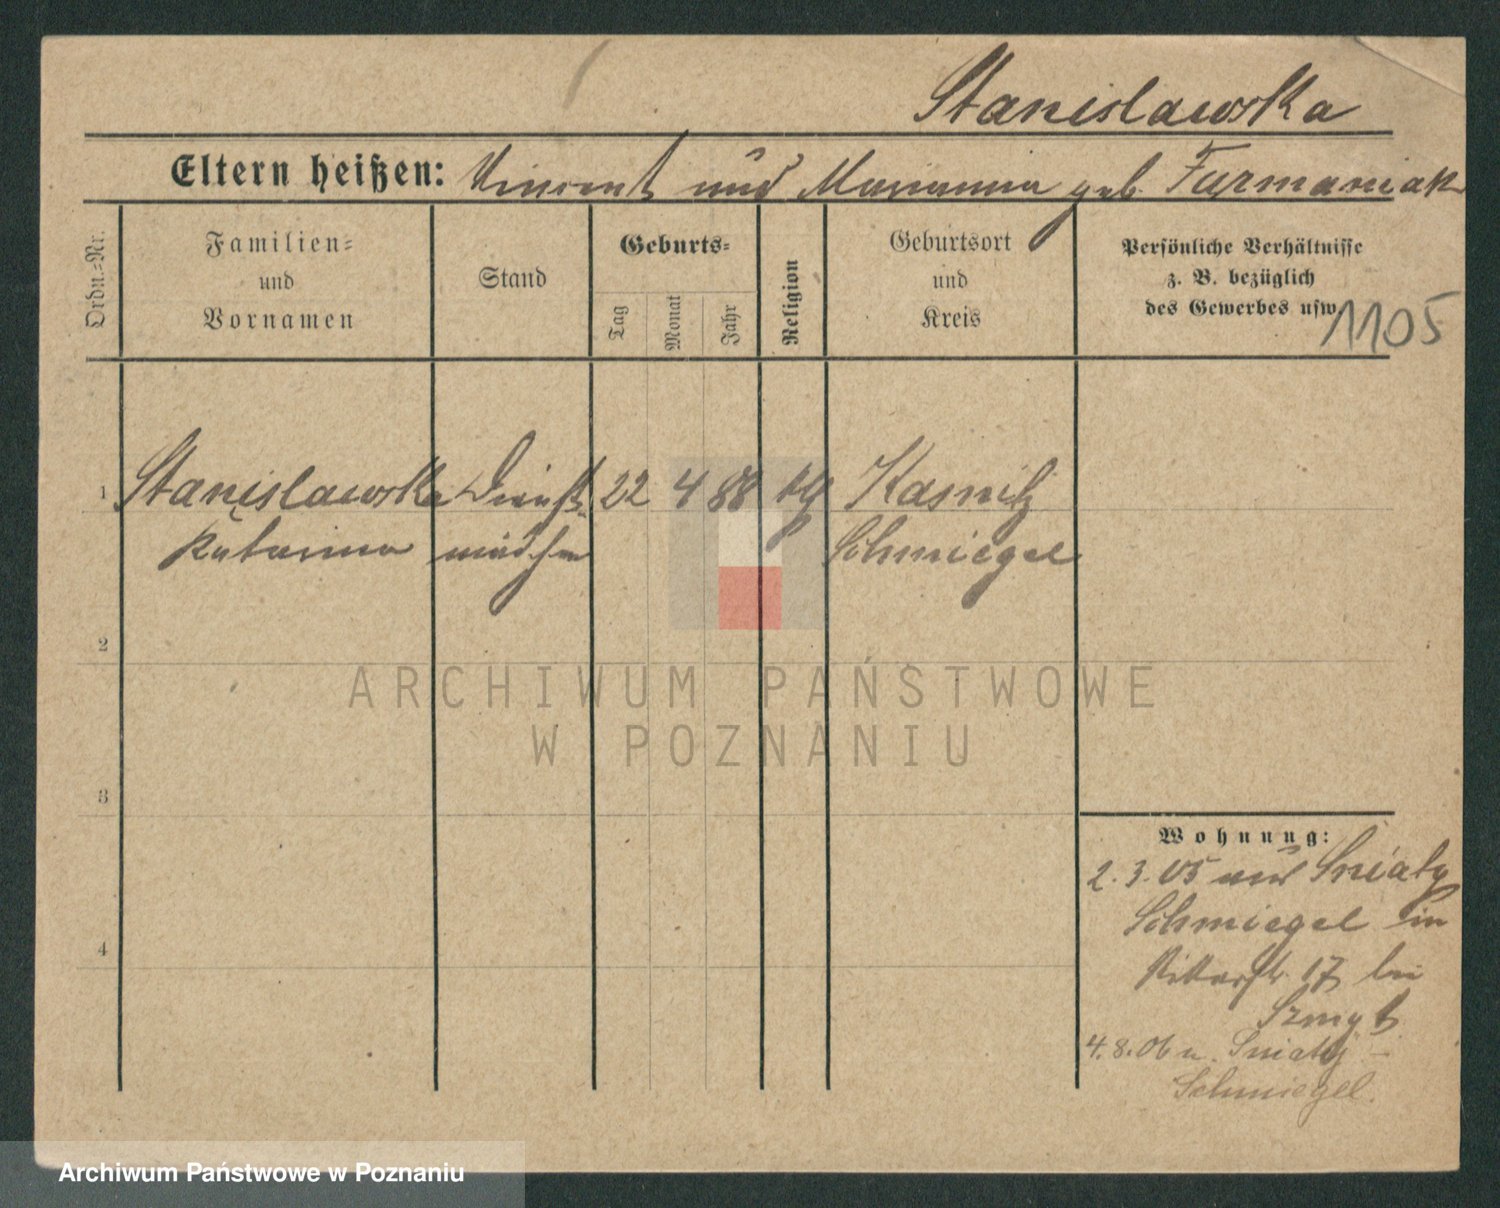 Stanislawska
Eltern heißen: Vincent und Marianna geb. Furmaniak
Ordn.=Nr.
Familien=
und
Vornamen
Stand
Geburts=
Tag
Monat
Jahr
Religion
Geburtsort
und
Kreis
Persönliche Verhältnisse
z. B. bezüglich
des Gewerbes usw.
1105
1 Stanislawska Dienst= 22 4 88 kth Kasnitz
Katarina mädchen Schmiegel
2
3
4
Wohnung:
2.3.05 aus Sniaty
Schmiegel in
Ritterstr. 17 bei
Szmyt
4.8.06 n. Sniaty -
Schmiegel.
ARCHIWUM PAŃSTWOWE
W POZNANIU
Archiwum Państwowe w Poznaniu